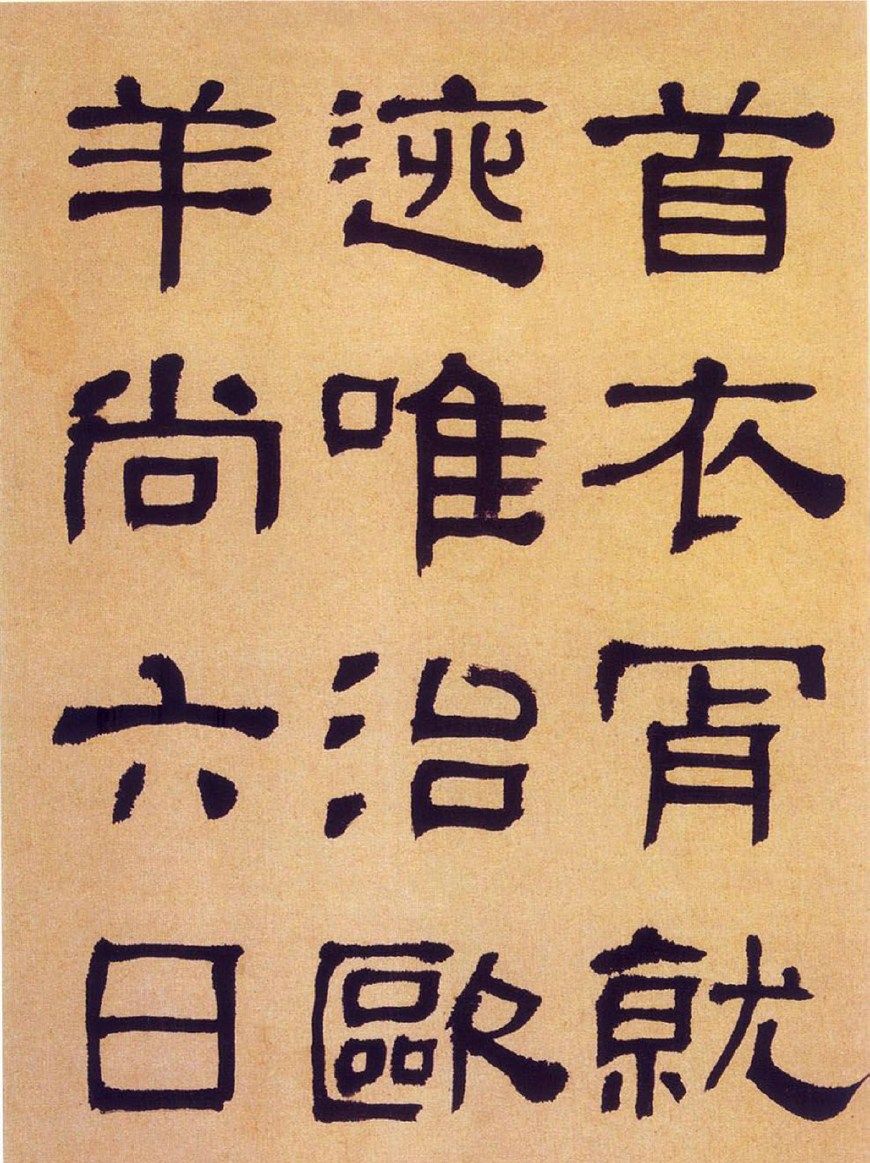 首衣胥就
迹唯治歐
羊尚六日